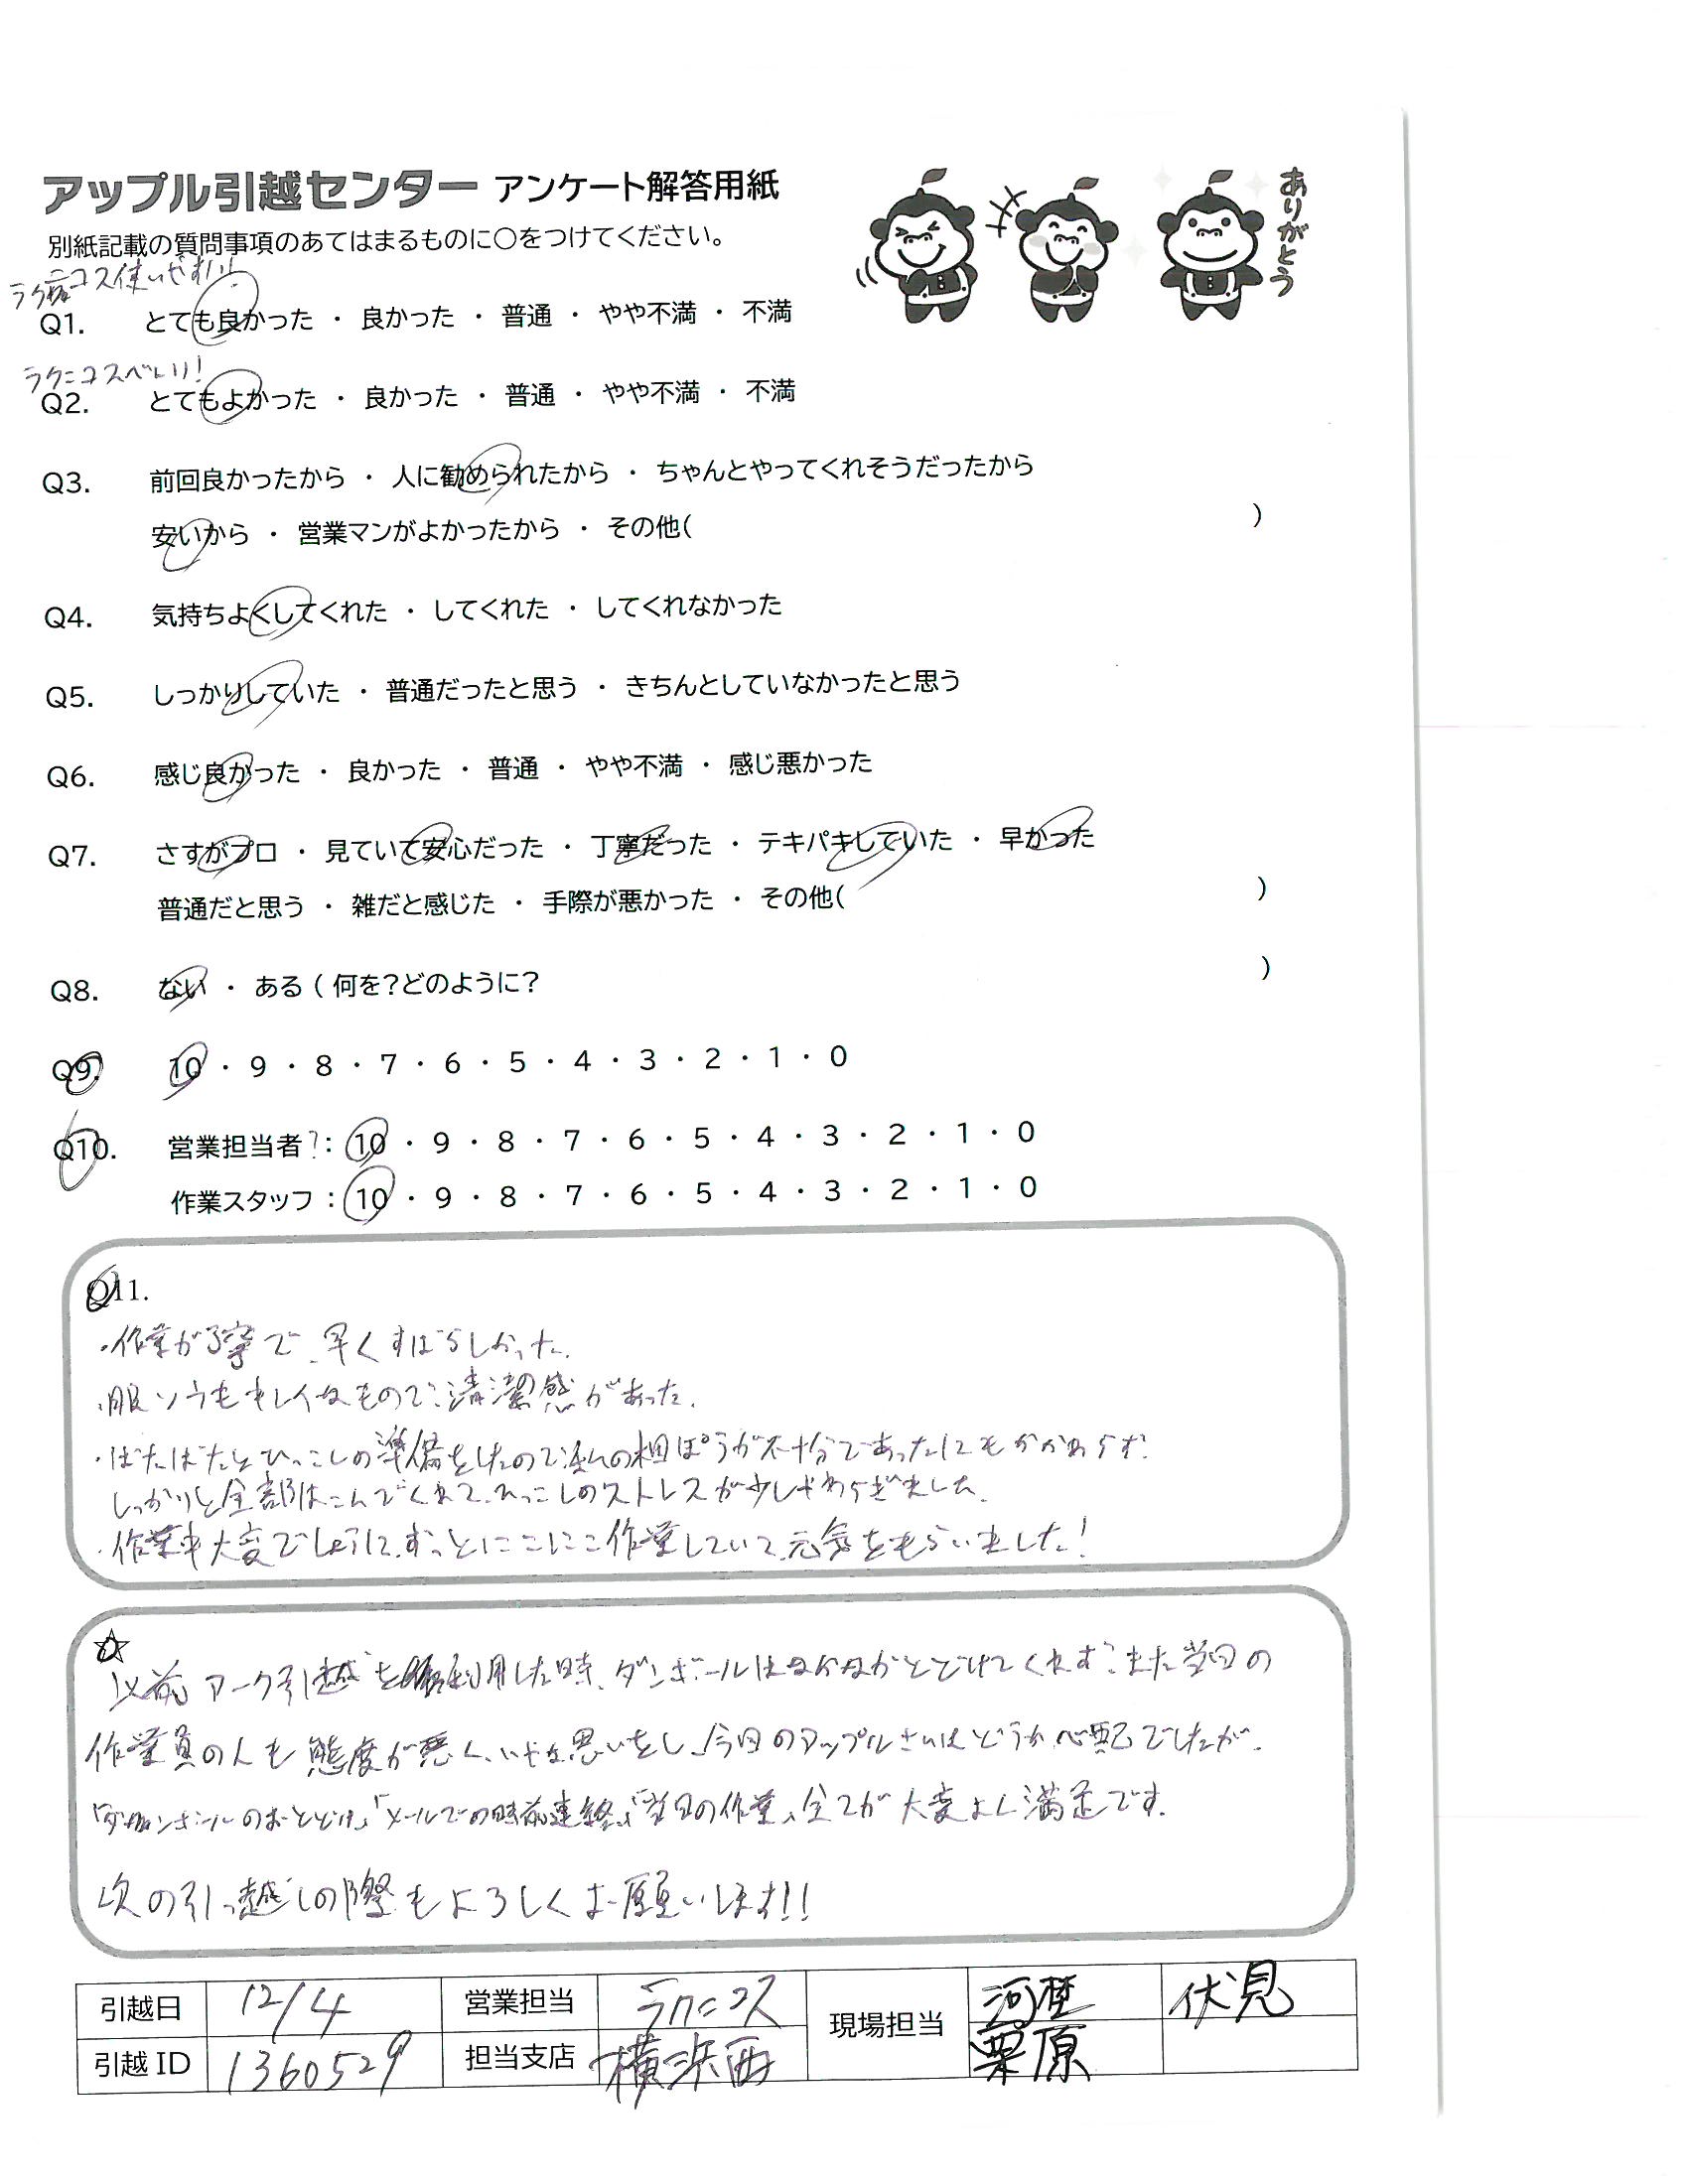 アップル引越センター アンケート解答用紙
ありがとう
別紙記載の質問事項のあてはまるものに○をつけてください。
ラクニコス使いやすい!
Q1. とても良かった ・ 良かった ・ 普通 ・ やや不満 ・ 不満
ラクニコスべんり!
Q2. とてもよかった ・ 良かった ・ 普通 ・ やや不満 ・ 不満
Q3. 前回良かったから ・ 人に勧められたから ・ ちゃんとやってくれそうだったから
安いから ・ 営業マンがよかったから ・ その他( )
Q4. 気持ちよくしてくれた ・ してくれた ・ してくれなかった
Q5. しっかりしていた ・ 普通だったと思う ・ きちんとしていなかったと思う
Q6. 感じ良かった ・ 良かった ・ 普通 ・ やや不満 ・ 感じ悪かった
Q7. さすがプロ ・ 見ていて安心だった ・ 丁寧だった ・ テキパキしていた ・ 早かった
普通だと思う ・ 雑だと感じた ・ 手際が悪かった ・ その他( )
Q8. ない ・ ある ( 何を?どのように? )
Q9. 10 ・ 9 ・ 8 ・ 7 ・ 6 ・ 5 ・ 4 ・ 3 ・ 2 ・ 1 ・ 0
Q10. 営業担当者?: 10 ・ 9 ・ 8 ・ 7 ・ 6 ・ 5 ・ 4 ・ 3 ・ 2 ・ 1 ・ 0
作業スタッフ : 10 ・ 9 ・ 8 ・ 7 ・ 6 ・ 5 ・ 4 ・ 3 ・ 2 ・ 1 ・ 0
Q11.
・作業が丁寧で、早くすばらしかった。
・服ソウもキレイなもので、清潔感があった。
・ばたばたとひっこしの準備をしたので、私の梱ぽうが不十分であったにもかかわらず、
しっかりと全部はこんでくれて、ひっこしのストレスが少しやわらぎました。
・作業も大変でしょうに、ずっとにこにこ作業していて、元気をもらいました!
☆
以前アーク引越を利用した時、ダンボールはなかなかとどけてくれず、また当日の
作業員の人も態度が悪く、いやな思いをし、今日のアップルさんはどうか心配でしたが、
「ダンボールのおとどけ」「メールでの事前連絡」「当日の作業」全てが大変よく満足です。
次の引っ越しの際もよろしくお願いします!!
引越日 12/4 営業担当 ラクニコス 現場担当 河埜 伏見
引越ID 1360529 担当支店 横浜西 栗原